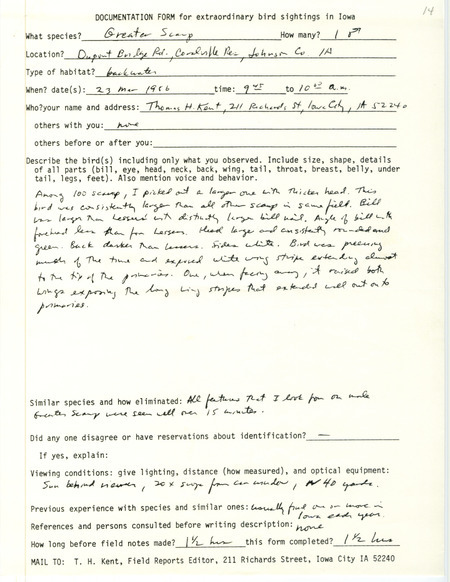 14
DOCUMENTATION FORM for extraordinary bird sightings in Iowa
What species? Greater Scaup How many? 1 ♂
Location? Dupont Bridge Rd., Coralville Res, Johnson Co IA
Type of habitat? backwater
When? date(s): 23 Mar 1986 time: 9 45 to 10 20 a.m.
Who? your name and address: Thomas H. Kent, 211 Richards St, Iowa City, IA 52240
others with you: none
others before or after you:
Describe the bird(s) including only what you observed. Include size, shape, details
of all parts (bill, eye, head, neck, back, wing, tail, throat, breast, belly, under
tail, legs, feet). Also mention voice and behavior.
Among 100 scaup, I picked out a larger one with thicker head. This
bird was consistently larger than all other scaup in same field. Bill
was larger than Lessers with distinctly larger bill nail. Angle of bill with
forehead less than for Lessers. Head large and consistently rounded and
green. Back darker than Lessers. Sides white. Bird was preening
much of the time and exposed white wing stripe extending almost
to the tip of the primaries. Once, when facing away, it raised both
wings exposing the long wing stripes that extended well out onto
primaries.
Similar species and how eliminated: All features that I look for on male
Greater Scaup were seen well over 15 minutes.
Did any one disagree or have reservations about identification? —
If yes, explain:
Viewing conditions: give lighting, distance (how measured), and optical equipment:
Sun behind viewer, 20x scope from car window, ~ 40 yards.
Previous experience with species and similar ones: usually find one or more in
Iowa each year.
References and persons consulted before writing description: none
How long before field notes made? 1 1/2 hrs this form completed? 1 1/2 hrs
MAIL TO: T. H. Kent, Field Reports Editor, 211 Richards Street, Iowa City IA 52240